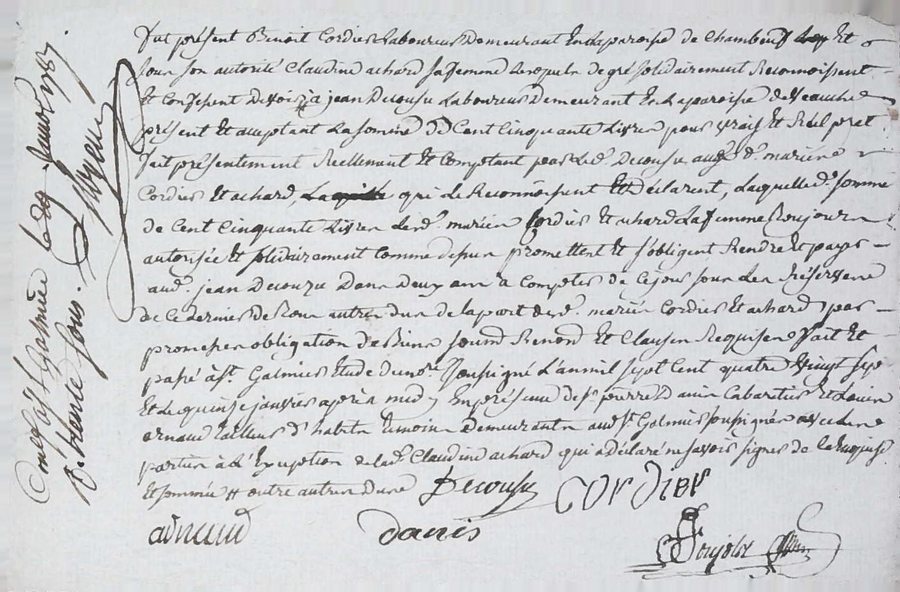 fut présent Benoit Cordier Laboureur Demeurant En La paroisse de Chambeuf Et
sous son autorité Claudine achard sa femme Lesquels de gré solidairement Reconnoissent
Et Confessent Devoir à jean Decousu Laboureur Demeurant En La paroisse de Veauche
présent Et acceptant La somme De Cent Cinquante Livres pour vray Et Réel prêt
fait présentement Reellement Et Comptant par Led. Decousu auxd. mariés
Cordier Et achard, qui Le Reconnoissent Et Déclarent, Laquelle d. somme
de Cent Cinquante Livres Lesd. mariés Cordier Et achard La femme Toujours
autorisée Et solidairement Comme dessus promettent Et s'obligent Rendre Et payer
aud. jean Decousu Dans Deux ans à Compter de Ce jour sous Les Réserves
de Ce dernier de Tous autres dus de la part desd. mariés Cordier Et achard par
promesses obligation de Biens soumis Renond. Et Clauses Requises fait Et
passé à St. Galmier Etude du no.re soussigné L'an mil sept Cent quatre Vingt sept
Et Le quinze janvier après midy En présence de s.r pierre Danis Cabaretier Et Louis
arnaud tailleur d'habits témoins Demeurants aud. St. Galmier soussignés avec Les
parties à L'Exception de lad. Claudine achard qui a déclaré ne savoir signer de Ce Requise
Et sommée outre autres dus
Decousu Cordier
arnaud danis
Controllé à St. galmier
janvier 1787